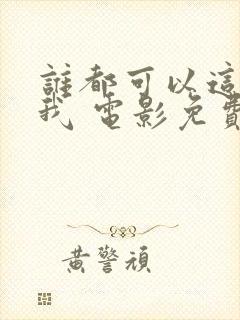 誰都可以這
我 電影免費
黃警頑